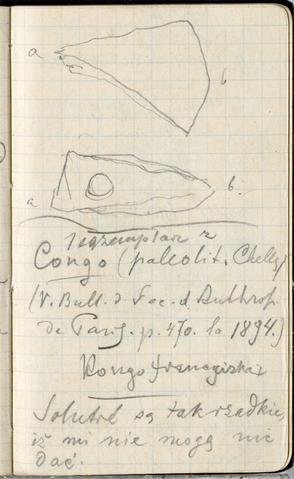 a
b
a
b.
1 egzemplarz z
Congo (paleolit. Chelly)
(V. Bull. d. Soc. d. Anthrop.
de Paris. p. 470. la 1894.)
Kongo francuzkie
Solutré są tak rzadkie,
iż mi nie mogą nic
dać.